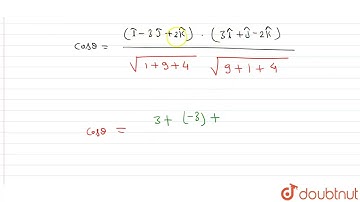 cosθ = (î-3ĵ+2k̂) . (3î+ĵ-2k̂)
√1+9+4 √9+1+4
cosθ = 3+ (-3) +
doubtnut